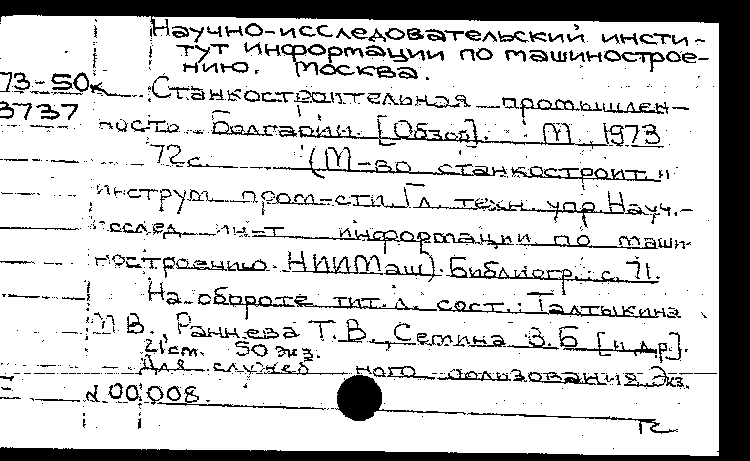 Научно-исследовательский инсти-
тут информации по машинострое-
нию. Москва.
73-50к Станкостроительная промышлен-
3737 ность Болгарии. [Обзор]. М., 1973
72с. (М-во станкостроит. и
инструм пром-сти. Гл. техн. упр. Науч.-
исслед. ин-т информации по маши-
ностроению. НИИМаш). Библиогр.: с. 71.
На обороте тит. л. сост.: Талтыкина
В., Раннева Т.В., Семина З.Б [и др.].
21 см. 50 экз.
Для служеб ного пользования. Экз.
00008.